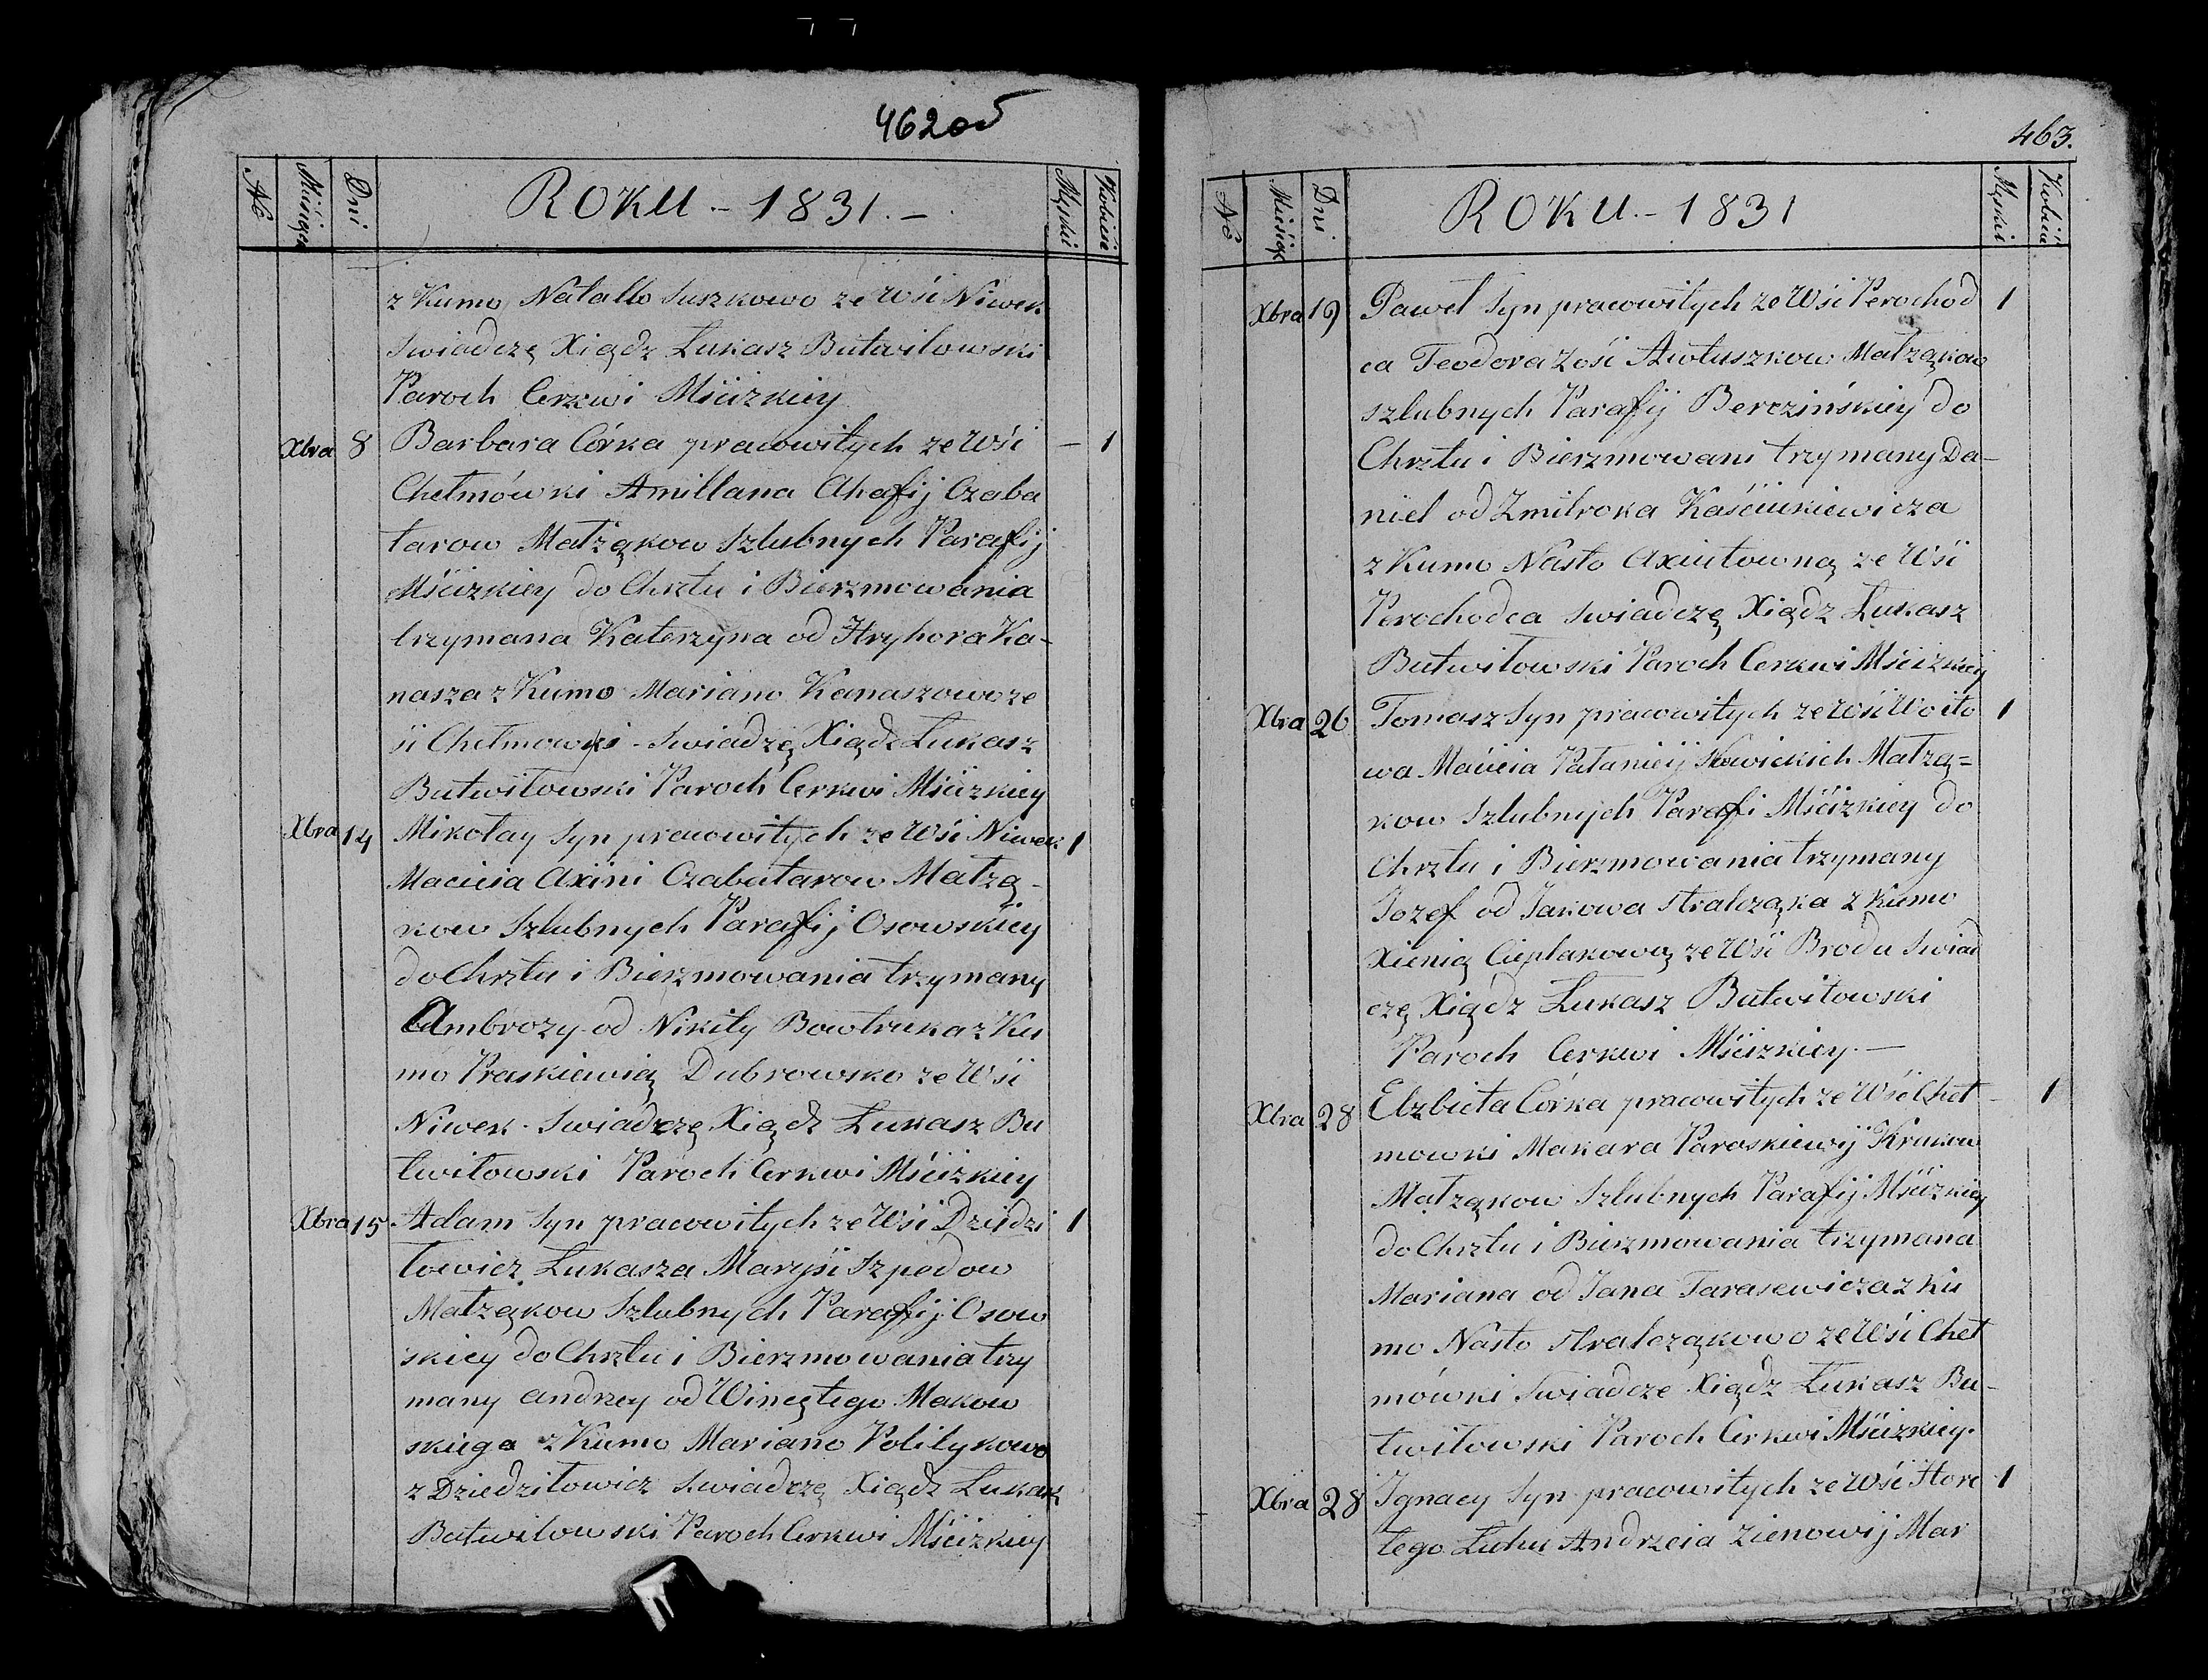 462об
№ Miesiąc Dni ROKU - 1831. - Męskie Kobiéc
z Kumo Natallo Suszkowo ze Wsi Niwek
Swiadczę Xiądz Łukasz Butwiłowski
Paroch Cerkwi Mścizkiey
Xbra 8 Barbara Córka pracowitych ze Wśi — 1
Chełmówki Amillana Ahafij Czaba
tarow Małżąkow Szlubnych Parafij
Mścizkiey do Chrztu i Bierzmowania
trzymana Katerzyna od Hryhora Ka-
nasza z Kumo Mariano Kanaszowo ze
si Chełmowki - Swiadzę Xiądz Łukasz
Butwiłowski Paroch Cerkwi Mścizkiey
Xbra 14 Mikołay Syn pracowitych ze Wśi Niwek 1
Macieia Axini Czabatarow Małżą-
kow Szlubnych Parafij Osowskiey
do Chrztu i Bierzmowania trzymany
Ambrozy od Nikity Bowtruka z Ku
mo Praskiewią Dubrowsko ze Wśi
Niwek - Swiadczę Xiądz Łukasz Bu
twiłowski Paroch Cerkwi Mścizkiey
Xbra 15 Adam Syn pracowitych ze Wśi Dziedzi 1
łowicz Łukasza Maryśi Szpedow
Małżąkow Szlubnych Parafij Osow
skiey do Chrztu i Bierzmowania trzy
many Andrzey od Winętego Makow
skiego z Kumo Mariano Politykowo
z Dziedziłowicz Swiadczę Xiądz Łukasz
Butwiłowski Paroch Cerkwi Mścizkiey
463.
№ Miesiąc Dni ROKU. - 1831 Męskie Kobiéc
Xbra 19 Paweł Syn pracowitych ze Wśi Perochod 1
ca Teodora Zośi Awtuszkow Małżąkow
szlubnych Parafij Berezińskiey do
Chrztu i Bierzmowani trzymany Da-
niel od Zmitroka Kaściukiewicza
z Kumo Nasto Axiutowną ze Wśi
Perochodca Swiadczę Xiądz Łukasz
Butwiłowski Paroch Cerkwi Mścizkiey
Xbra 26 Tomasz Syn pracowitych ze Wśi Woito 1
wa Macieia Pałaniej Nowickich Małżą=
kow Szlubnych Parafi Mścizkiey do
Chrztu i Bierzmowania trzymany
Jozef od Jakowa Stralcząka z Kumo
Xienią Cieplakową ze Wśi Brodu Swiad
czę Xiądz Łukasz Butwiłowski
Paroch Cerkwi Mścizkiey. —
Xbra 28 Elzbieta Córka pracowitych ze Wśi Cheł - 1
mowki Makara Paraskiewij Krukow
Małżąkow Szlubnych Parafij Mścizkiey
do Chrztu i Bierzmowania trzymana
Mariana od Jana Tarasewicza z Ku
mo Nasto Stralcząkowo ze Wśi Cheł
mówki Swiadcze Xiądz Łukasz Bu-
twiłowski Paroch Cerkwi Mścizkiey.
Xbra 28 Jgnacy Syn pracowitych ze Wśi Hore 1
łego Łuhu Andrzeia Zienowij Mar